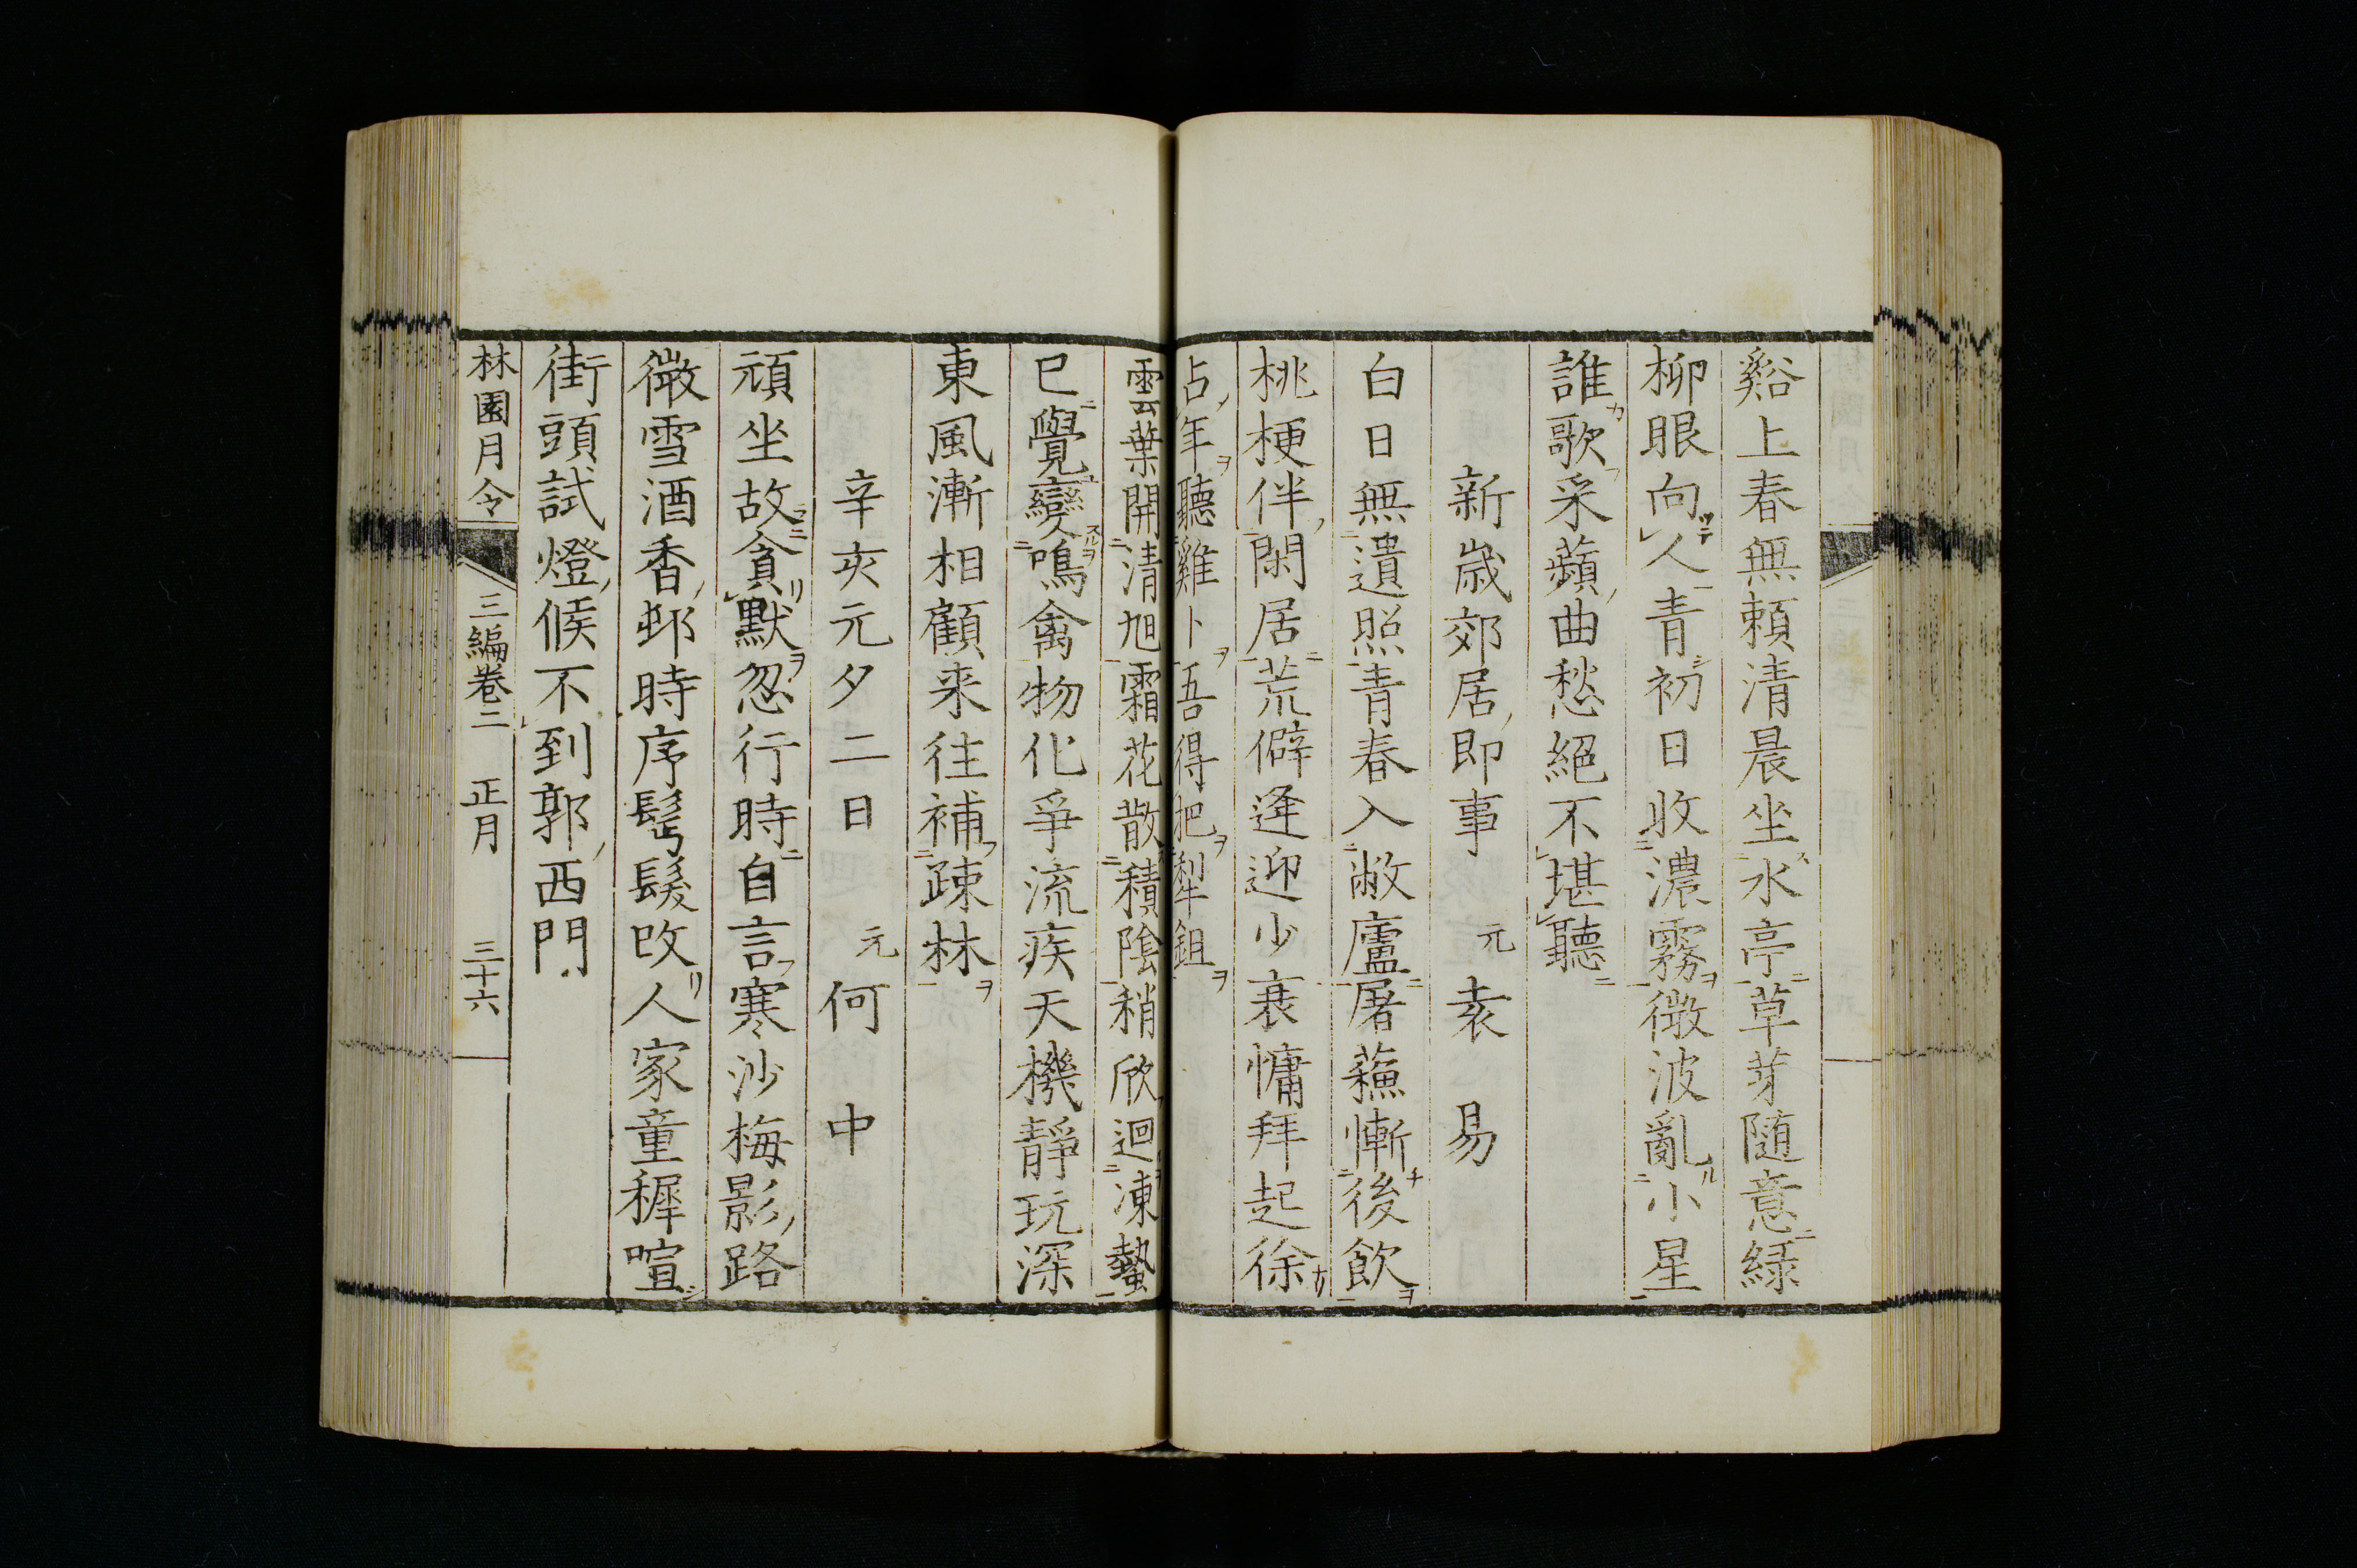 谿上春無頼清晨坐水亭草芽隨意緑
柳眼向人青初日收濃霧微波亂小星
誰歌采蘋曲愁絕不堪聽
新歳郊居即事　元　袁易
白日無遺照青春入敝廬屠蘓慚後飲
桃梗伴閑居荒僻逢迎少衰慵拜起徐
占年聽雞卜吾得把犁鉏
雲葉開清旭霜花散積陰稍欣迴凍蟄
已覺變鳴禽物化爭流疾天機靜玩深
東風漸相顧来往補疎林
辛亥元夕二日　元　何中
頑坐故貪默忽行時自言寒沙梅影路
微雪酒香邨時序鬅鬙改人家童穉喧
街頭試燈候不到郭西門
林園月令　三編卷二　正月　三十六